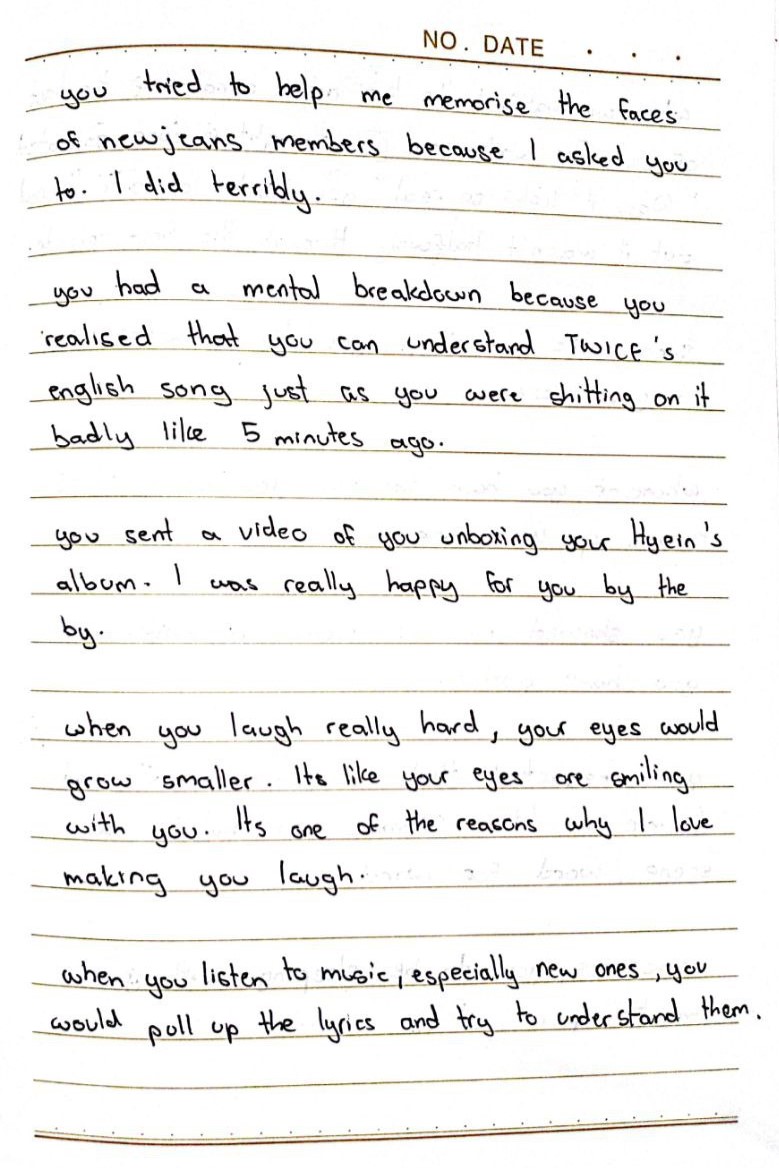 NO. DATE . . .
you tried to help me memorise the faces
of newjeans members because I asked you
to. I did terribly.
you had a mental breakdown because you
realised that you can understand TWICE's
english song just as you were shitting on it
badly like 5 minutes ago.
you sent a video of you unboxing your Hyein's
album. I was really happy for you by the
by.
when you laugh really hard, your eyes would
grow smaller. Its like your eyes are smiling
with you. Its one of the reasons why I love
making you laugh.
when you listen to music, especially new ones, you
would pull up the lyrics and try to understand them.